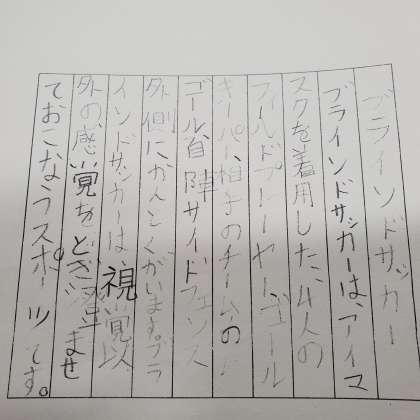 ブラインドサッカー
ブラインドサッカーは、アイマ
スクを着用した、4人の
フィールドプレーヤー、ゴール
キーパー、相手のチームの
ゴール、自陣サイドフェンス
外側にかんとくがいます。ブラ
インドサッカーは、視覚以
外の感覚をとぎ澄ませ
ておこなうスポーツです。